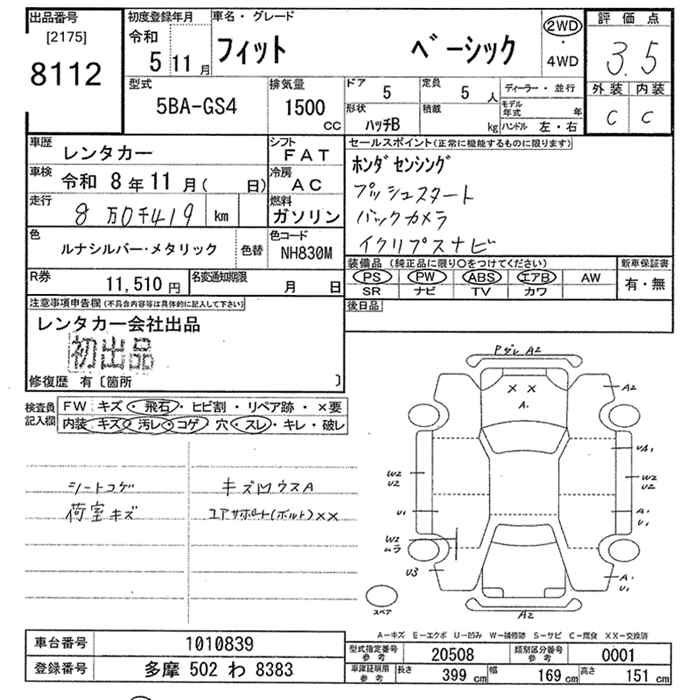 出品番号 初度登録年月 車名・グレード 評価点
[2175] 令和
8112 5 11月 フィット ベーシック 2WD・4WD 3.5
型式 排気量 ドア 5 定員 5人 ディーラー・並行 外装 内装
5BA-GS4 1500cc 形状 ハッチB 積載 kg モデル年式 年 ハンドル 左・右 C C
車歴 レンタカー シフト FAT セールスポイント(正常に機能するものに限ります)
車検 令和 8年11月( 日) 冷房 AC ホンダセンシング
走行 8万0千419 km 燃料 ガソリン プッシュスタート
バックカメラ
色 ルナシルバー・メタリック 色替 色コード NH830M イクリプスナビ
R券 11,510円 名変通知期限 月 日 装備品(純正品に限り○をつけてください) 新車保証書
PS PW ABS エアB AW 有・無
SR ナビ TV カワ
注意事項申告欄(不具合内容等は具体的に記入して下さい) 後日品
レンタカー会社出品
初出品
修復歴 有〔箇所 〕
検査員記入欄 FW キズ・飛石・ヒビ割・リペア跡・×要
内装 キズ・汚レ・コゲ・穴・スレ・キレ・破レ
シートコゲ
荷室キズ
キズ凹ウスA
コアサポート(ボルト)××
PグレA2
×× A.
A2
UA1
W2 U2
W2 U2
U1
A. U1
W2 ムラ
U3
A. U1
A2
スペア
A−キズ E−エクボ U−凹み W−補修跡 S−サビ C−腐食 XX−交換済
車台番号 1010839 型式指定番号 参考 20508 類別区分番号 参考 0001
登録番号 多摩 502 わ 8383 車庫証明用 参考 長さ 399 cm 幅 169 cm 高さ 151 cm